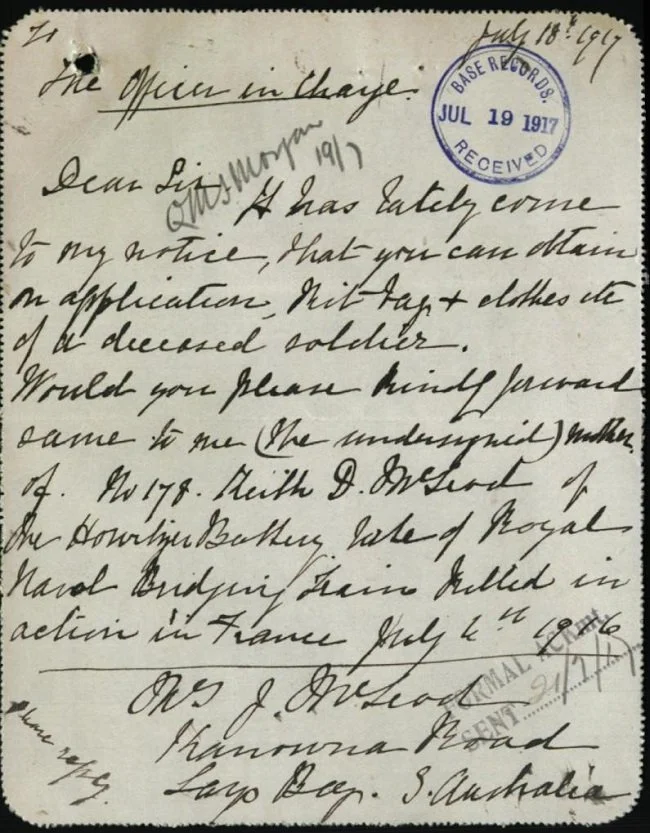 To
July 18th 1917
The Officer in Charge.
BASE RECORDS.
JUL 19 1917
RECEIVED
QMS Morgan
19/7
Dear Sir It has lately come
to my notice, that you can obtain
on application, Kit bag + clothes etc
of a deceased soldier.
Would you please kindly forward
same to me (the undersigned) mother
of. No 178. Keith D. McLeod of
the Howitzer Battery late of Royal
Naval Bridging Train killed in
action in France July 4th 1916
FORMAL ACKN.
SENT 21/7/17
Mrs J. McLeod
Kanowna Road
Largs Bay. S. Australia
please reply.